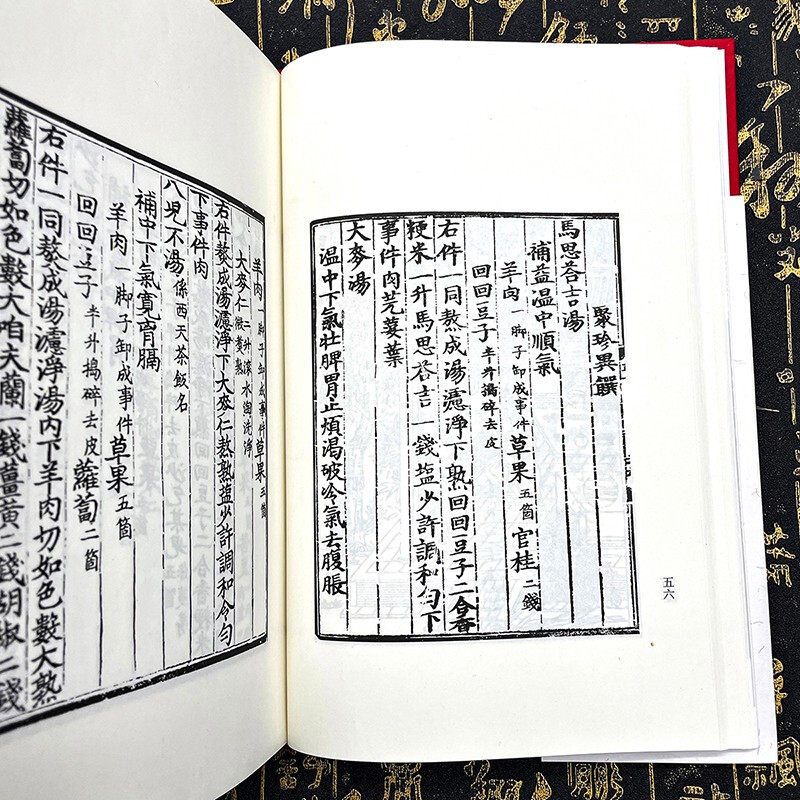 聚珍異饌
馬思荅吉湯
補益温中順氣
羊肉一脚子卸成事件草果五箇官桂二錢
回回豆子半升搗碎去皮
右件一同熬成湯濾淨下熟回回豆子二合香
粳米一升馬思荅吉一錢塩少許調和勻下
事件肉芫荽葉
大麥湯
温中下氣壯脾胃止煩渴破冷氣去腹脹
五六
羊肉一脚子卸成事件草果箇
大麥仁二升滚水淘洗淨微煑熟
右件熬成湯濾淨下大麥仁熬熟塩少許調和令勻
下事件肉
八児不湯係西天茶飯名
補中下氣寛胷膈
羊肉一脚子卸成事件草果五箇
回回豆子半升搗碎去皮蘿蔔二箇
右件一同熬成湯濾淨湯内下羊肉切如色數大熟
蘿蔔切如色數大咱夫蘭一錢薑黃二錢胡椒二錢